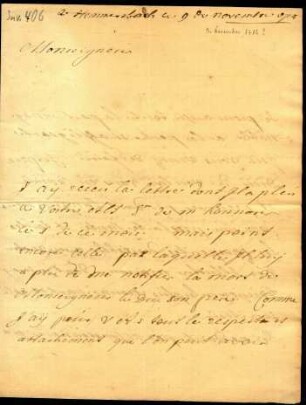 406
de Hemmersbach ce 9 de novembre
Monseigneur
J'ay receu la lettre dont il a pleu
a Votre Alts S. de m'honnorer
le 5 de ce mois, mais point
encore celle par laquelle il luy
a pleu de me notifier la mort de
Monseigneur le duc son pere. Comme
J'ay pour V. A. S. tout le respect et
attachement que l'on peut avoir